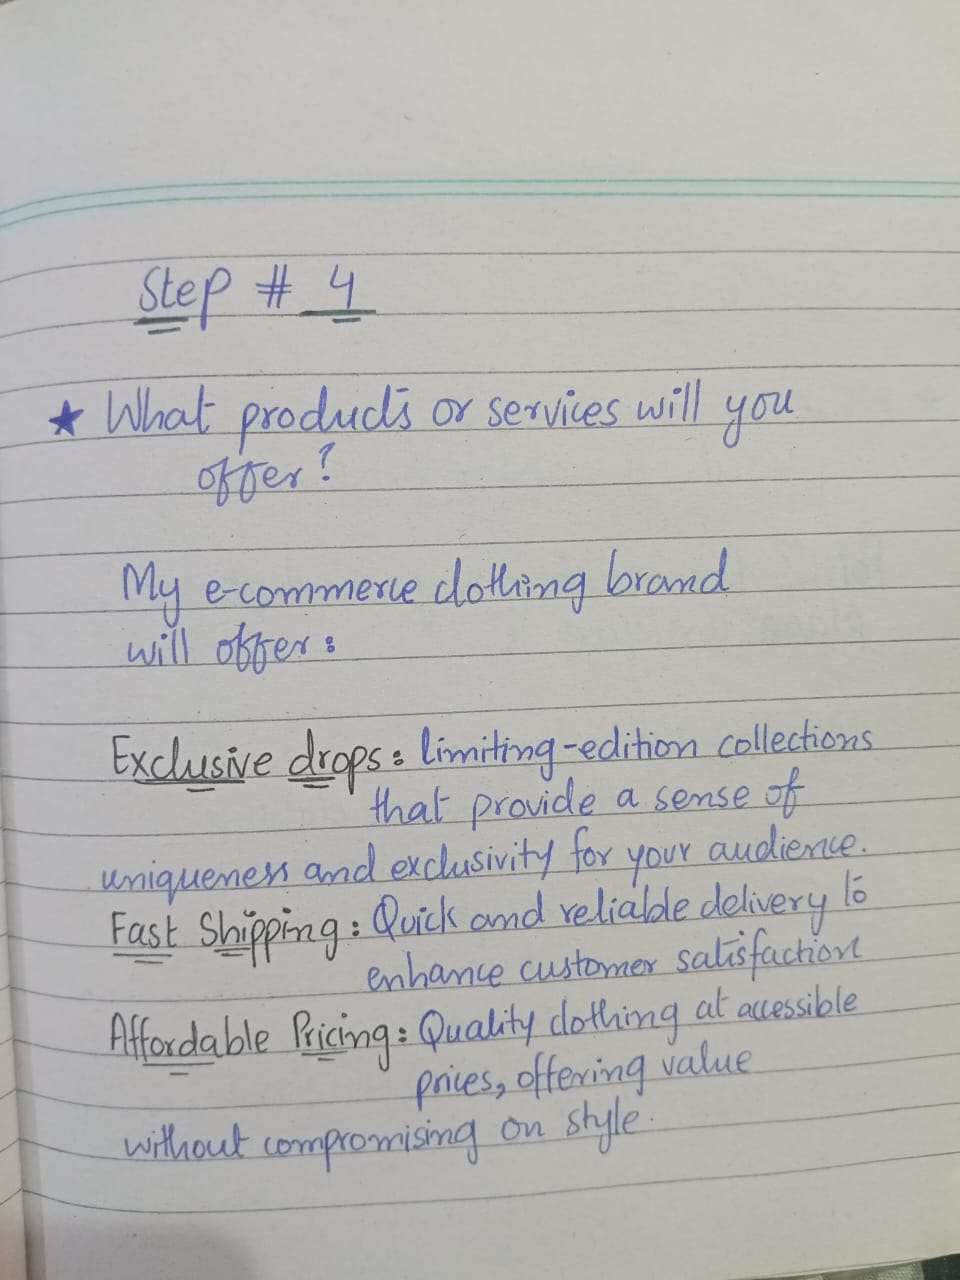 Step # 4
★ What products or services will you
offer?
My e-commerce clothing brand
will offer:
Exclusive drops: limiting-edition collections
that provide a sense of
uniqueness and exclusivity for your audience.
Fast Shipping: Quick and reliable delivery to
enhance customer satisfaction
Affordable Pricing: Quality clothing at accessible
prices, offering value
without compromising on style.